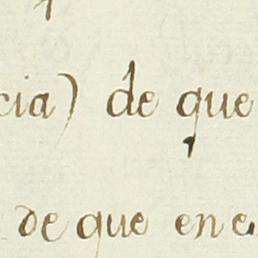 cia) de que
de que en e